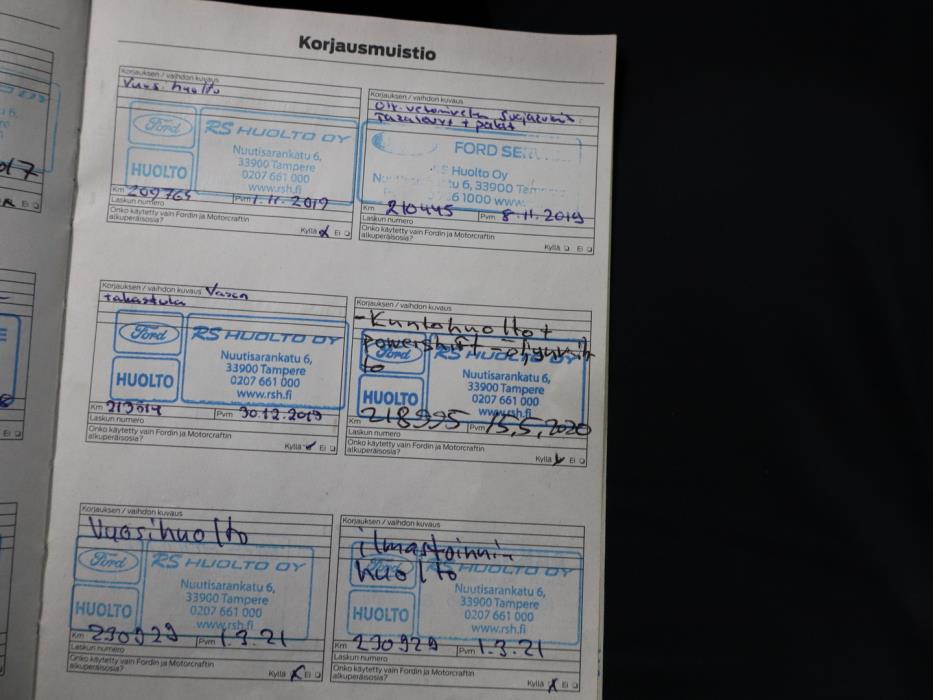 Korjausmuistio
Korjauksen / vaihdon kuvaus
Vuosihuolto
Ford
RS HUOLTO OY
HUOLTO
Nuutisarankatu 6,
33900 Tampere
0207 661 000
www.rsh.fi
Km 209765 Pvm 1.11.2019
Laskun numero
Onko käytetty vain Fordin ja Motorcraftin
alkuperäisosia?
Kyllä Ei
Korjauksen / vaihdon kuvaus
Oik. vetonivelen suojakumi.
+ palat
FORD SER
S Huolto Oy
tu 6, 33900 Tam
61000 www.
Km 210445 Pvm 8.11.2019
Laskun numero
Onko käytetty vain Fordin ja Motorcraftin
alkuperäisosia?
Kyllä Ei
Korjauksen / vaihdon kuvaus Vasen
takasatula
Ford
RS HUOLTO OY
HUOLTO
Nuutisarankatu 6,
33900 Tampere
0207 661 000
www.rsh.fi
Km Pvm 30.12.2019
Laskun numero
Onko käytetty vain Fordin ja Motorcraftin
alkuperäisosia?
Kyllä Ei
Korjauksen / vaihdon kuvaus
-Kuntohuolto +
Powershift - öljynvaih
to
Ford
RS HUOLTO OY
HUOLTO
Nuutisarankatu 6,
33900 Tampere
0207 661 000
www.rsh.fi
Km 218995 Pvm 15.5.2020
Laskun numero
Onko käytetty vain Fordin ja Motorcraftin
alkuperäisosia?
Kyllä Ei
Korjauksen / vaihdon kuvaus
Vuosihuolto
Ford
RS HUOLTO OY
HUOLTO
Nuutisarankatu 6,
33900 Tampere
0207 661 000
www.rsh.fi
Km 230929 Pvm 1.3.21
Laskun numero
Onko käytetty vain Fordin ja Motorcraftin
alkuperäisosia?
Kyllä Ei
Korjauksen / vaihdon kuvaus
ilmastoinnin
huolto
Ford
RS HUOLTO OY
HUOLTO
Nuutisarankatu 6,
33900 Tampere
0207 661 000
www.rsh.fi
Km 230929 Pvm 1.3.21
Laskun numero
Onko käytetty vain Fordin ja Motorcraftin
alkuperäisosia?
Kyllä Ei